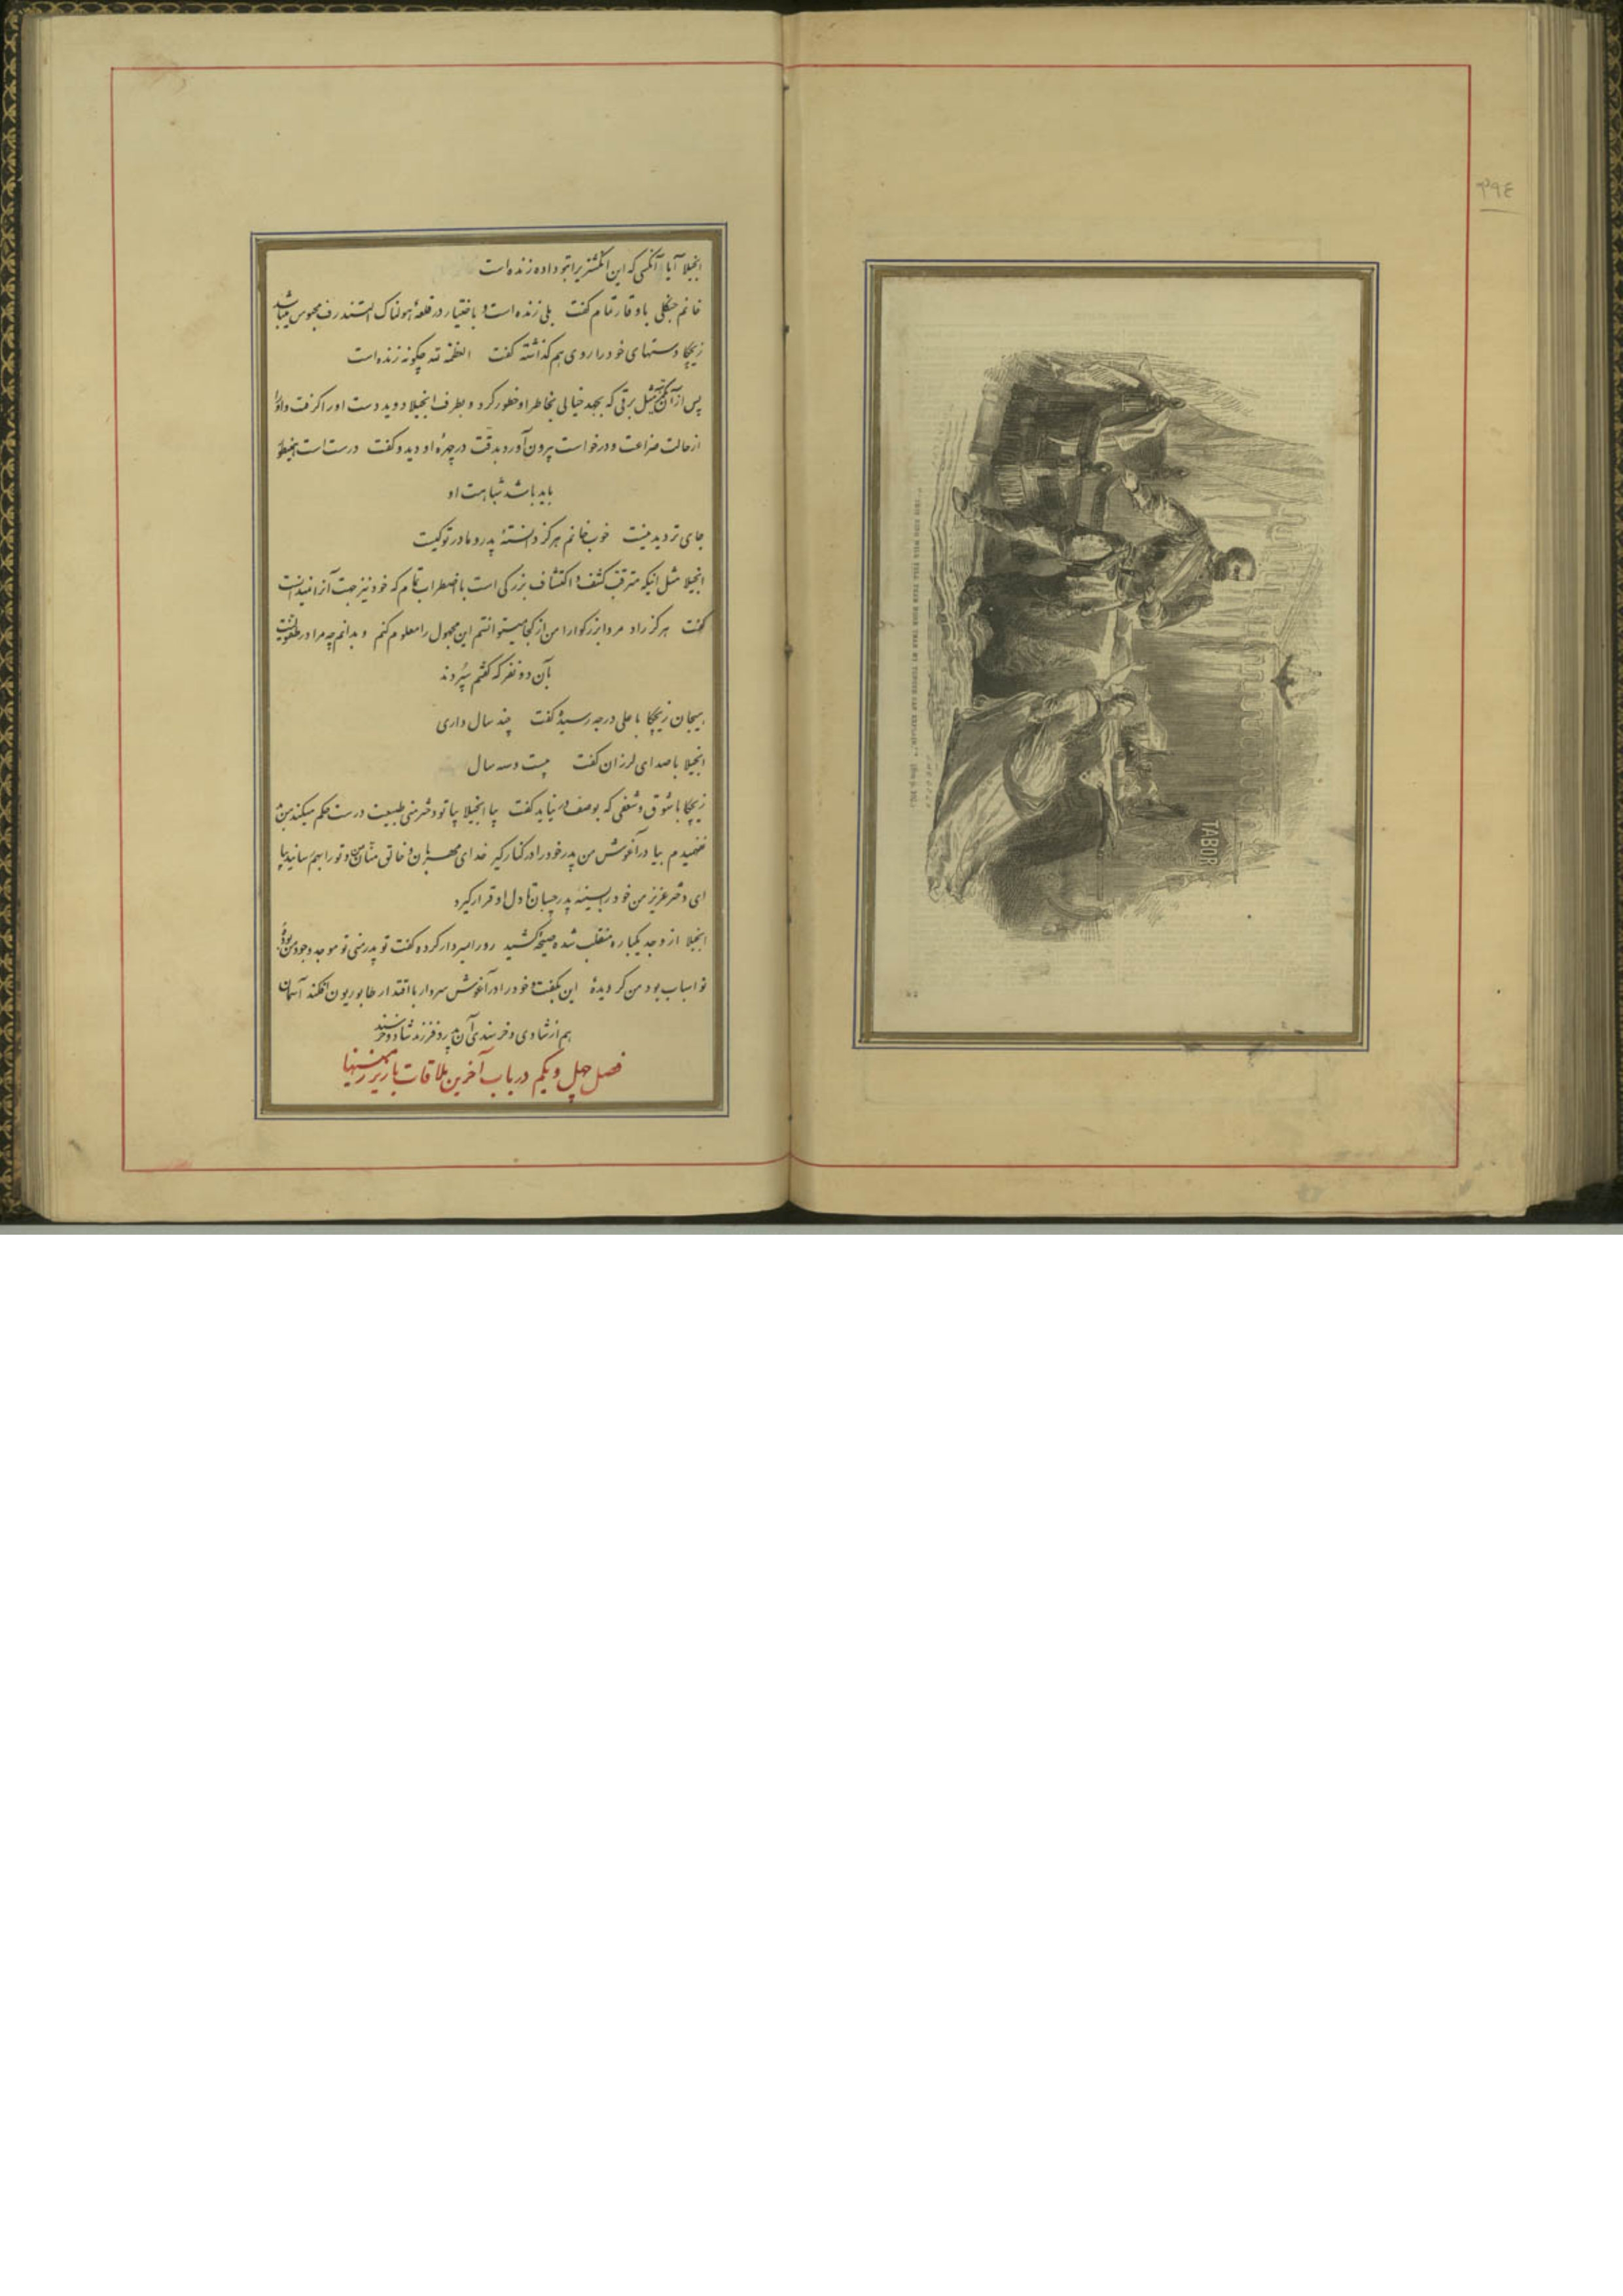 ۳۹٤
TABOR
انجیلا آیا آنکسی که این انگشتر را بتو داده زنده است
خانم جنگلی با وقار تمام گفت بلی زنده است و باختیار در قلعهٔ هولناک التندرف محبوس میباشد
زیچکا دستهای خود را روی هم گذاشته گفت العظمة لله چگونه زنده است
پس از آن مثل برقی که بجهد خیالی بخاطر او خطور کرد و بطرف انجیلا دوید دست او را گرفت و او را
از حالت ضراعت و درخواست بیرون آورد بدقت در چهرهٔ او دید و گفت درست است اینطور
باید باشد شباهت او
جای تردید نیست خوب خانم هرگز دانستهٔ پدر و مادر تو کیست
انجیلا مثل اینکه مترقب کشف و اکتشاف بزرگی است با اضطراب تمام که خود نیز جهت آنرا نمیدانست
گفت هرگز راد مردا بزرگوارا من از کجا میتوانستم این مجهول را معلوم کنم و بدانم چه مرا در طفولیت
بآن دو نفر که گفتم سپردند
هیجان زیچکا باعلی درجه رسیده گفت چند سال داری
انجیلا با صدای لرزان گفت بیست و سه سال
زیچکا با شوق و شعفی که بوصف در نیاید گفت بیا انجیلا بیا تو دختر منی طبیعت درست حکم میکند من
نفهمیدم بیا در آغوش من پدر خود را در کنار گیر خدای مهربان و خالق منّان من و تو را بهم رسانید بیا
ای دختر عزیز من خود را بسینهٔ پدر چسبان تا دل او قرار گیرد
انجیلا از وجد یکباره منقلب شده صیحهٔ کشید رو را بسردار کرده گفت تو پدر منی تو موجد وجود من بودهٔ
تو اسباب بود من گردیدهٔ این بگفت و خود را در آغوش سردار با اقتدار طابوریون افکند آسمان
هم از شادی و خرسندی آن پدر و فرزند شاد و خرسند
فصل چهل و یکم در باب آخرین ملاقات با